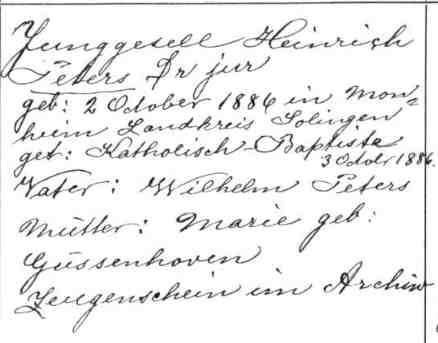 Junggesell Heinrich
Peters Dr jur
geb: 2 October 1886 in Mon=
heim Landkreis Solingen
get: Katholisch-Baptista
3 Octobr 1886.
Vater: Wilhelm Peters
Mutter: Marie geb:
Güssenhoven
Zeugenschein im Archiv